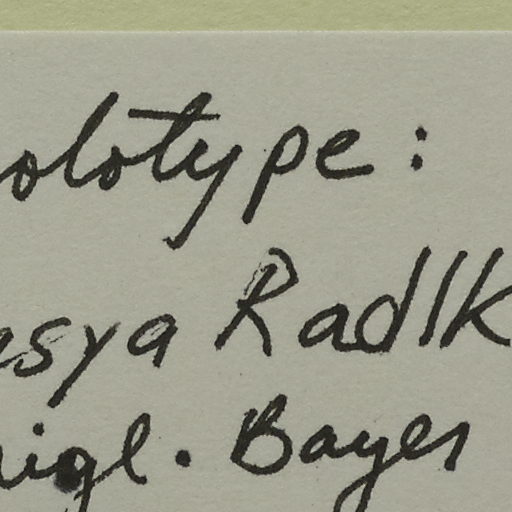 olotype:
esya Radlk
nigl. Bayer